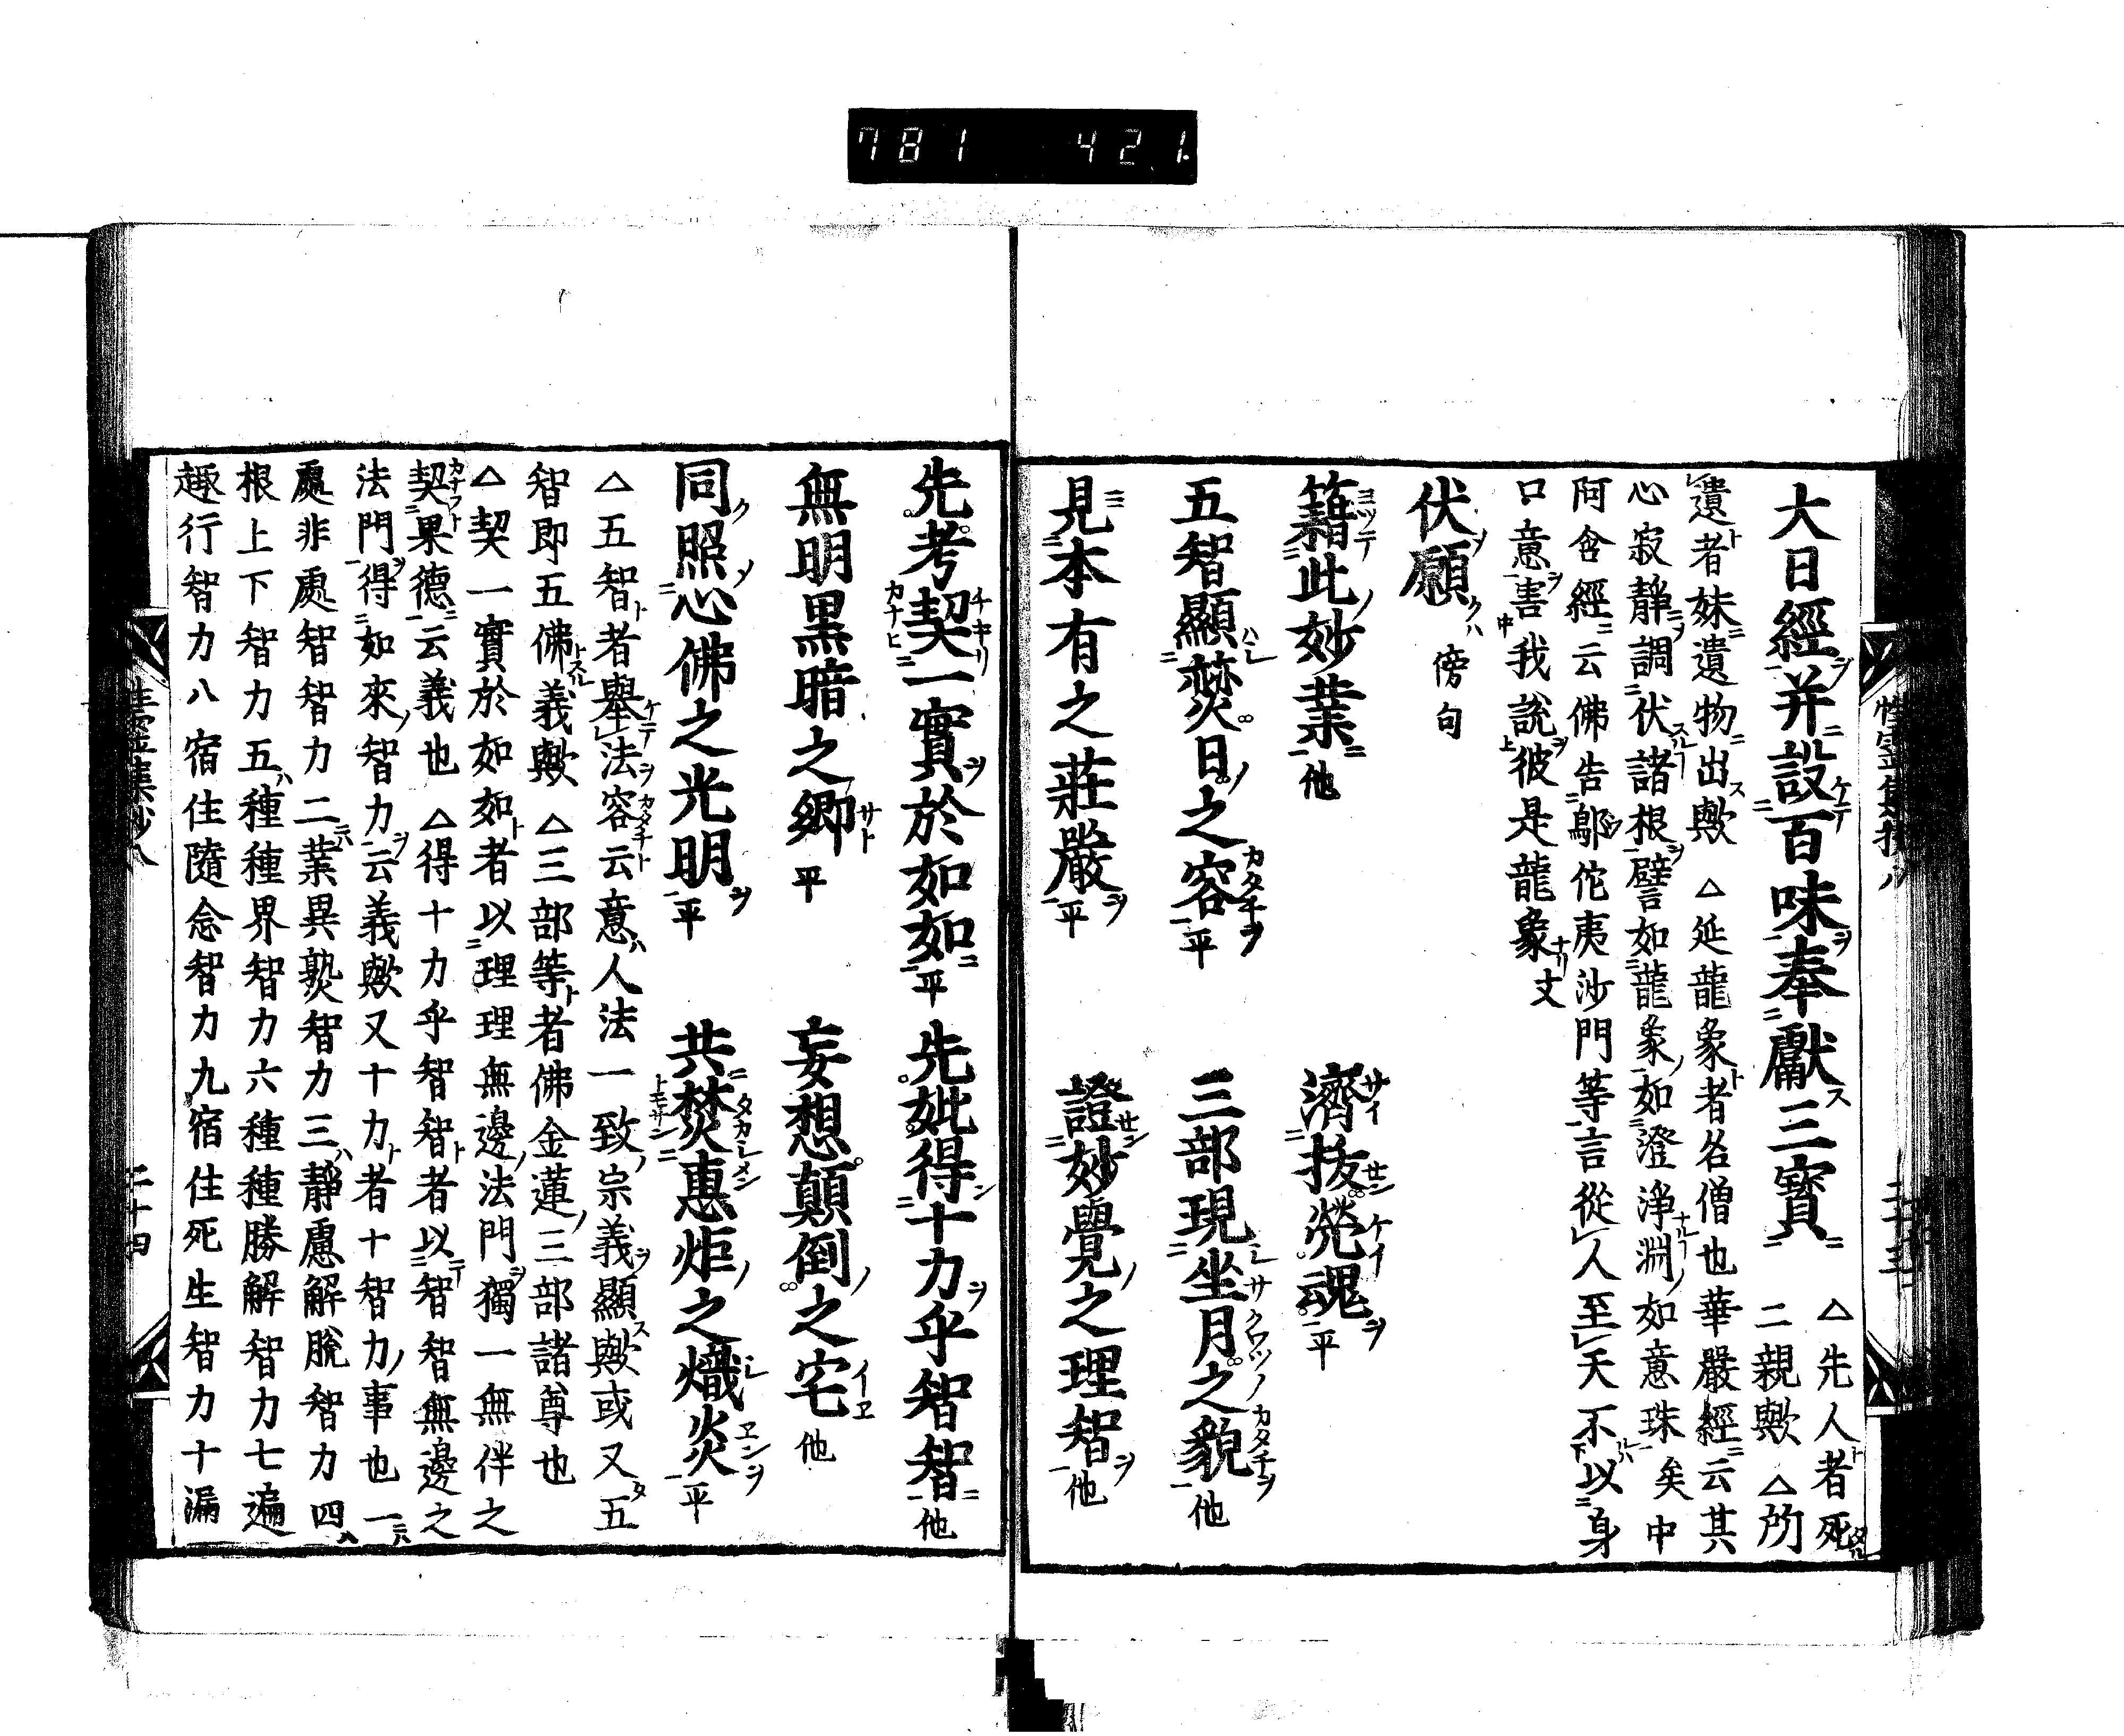 781 421
大日經并設百味奉獻三寳 △先人者死
二親歟 △所
遺者妹遺物出歟 △延龍象者名僧也華嚴經云其
心寂靜調伏諸根譬如龍象如澄淨淵如意珠矣中
阿含經云佛告鄔佗夷沙門等言從人至天不以身
口意害我說彼是龍象丈
伏願 傍句
籍此妙業他 濟拔煢魂平
五智顯焚日之容平 三部現坐月之貌他
見本有之莊嚴平 證妙覺之理智他
先考契一實於如如平 先妣得十力乎智智他
無明黒暗之郷平 妄想顛倒之宅他
同照心佛之光明平 共焚惠炬之熾炎平
△五智者舉法容云意人法一致宗義顯歟或又五
智即五佛義歟 △三部等者佛金蓮三部諸尊也
△契一實於如如者以理理無邊法門獨一無伴之
契果德云義也 △得十力乎智智者以智智無邊之
法門得如來智力云義歟又十力者十智力事也一
處非處智智力二業異熟智力三靜慮解脫智力四
根上下智力五種種界智力六種種勝解智力七遍
趣行智力八宿住隨念智力九宿住死生智力十漏
二十四